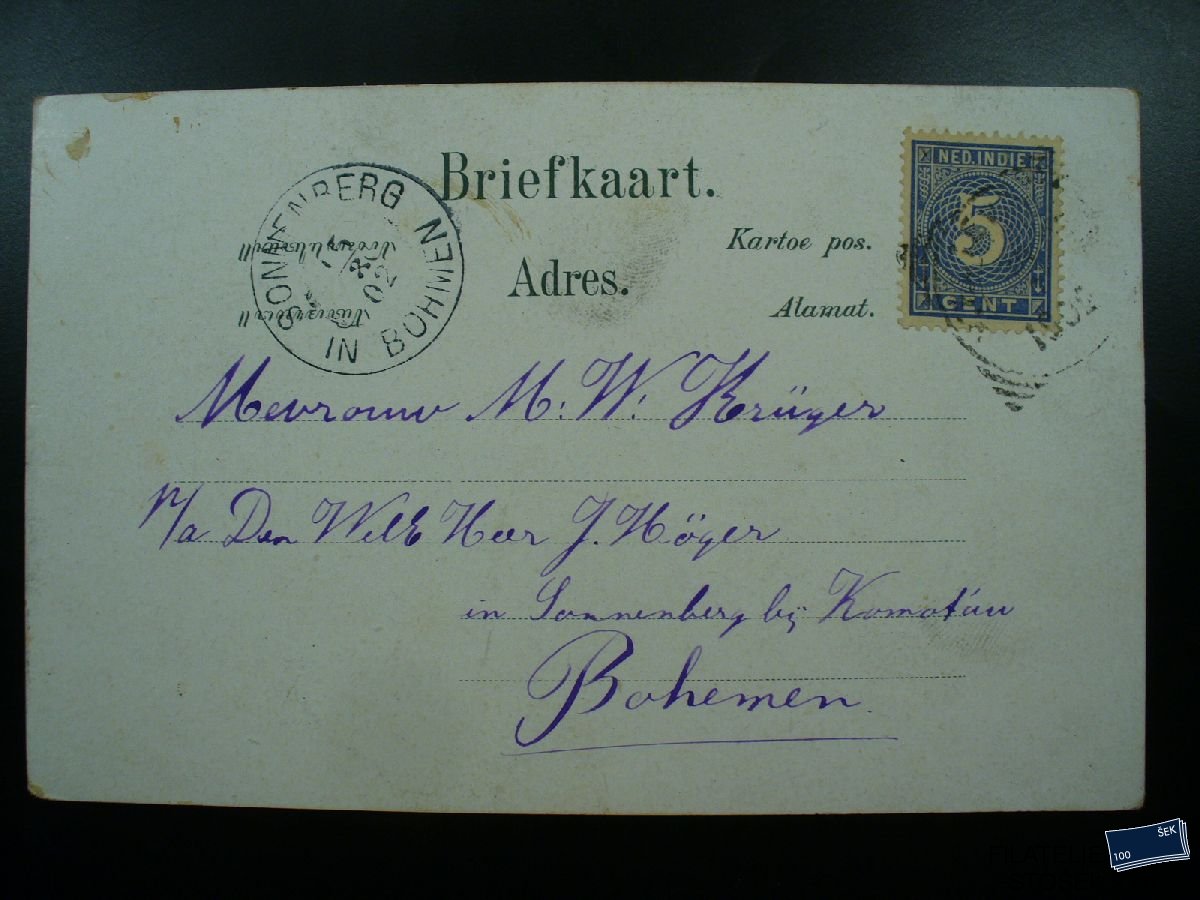 Briefkaart.
Kartoe pos.
Adres.
Alamat.
NED. INDIE
5
CENT
SONNENBERG
IN BÖHMEN
02
1902
Mevrouw M. W. Krüger
p/a Den WelE Heer J. Höger
in Sonnenberg bij Komotau
Bohemen
ŠEK
100